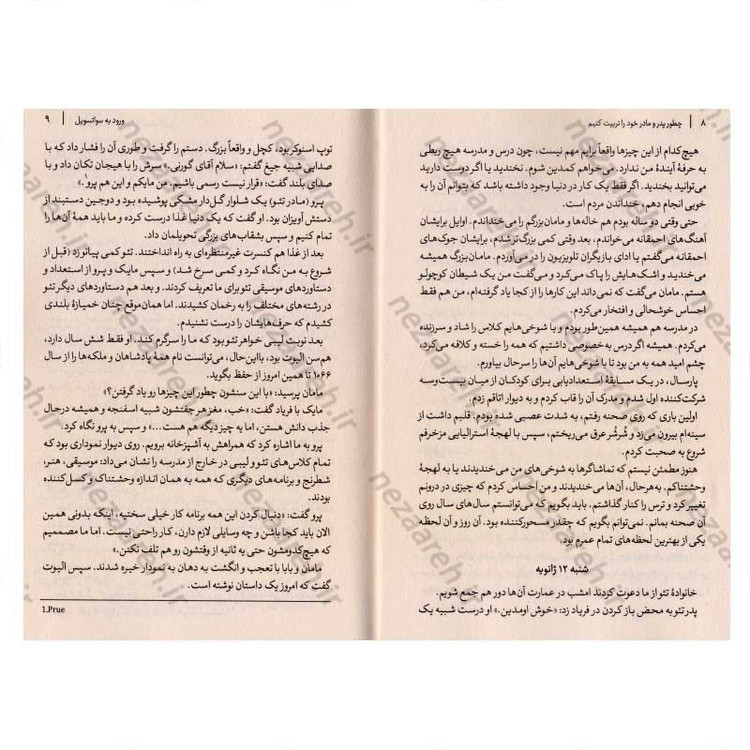 ۸ | چطور پدر و مادر خود را تربیت کنیم
هیچ‌کدام از این چیزها واقعاً برایم مهم نیست، چون درس و مدرسه هیچ ربطی
به حرفهٔ آیندهٔ من ندارد. می‌خواهم کمدین شوم. نخندید یا اگر دوست دارید
می‌توانید بخندید. اگر فقط یک کار در دنیا وجود داشته باشد که بتوانم آن را به
خوبی انجام دهم، خنداندن مردم است.
حتی وقتی دو ساله بودم هم خاله‌ها و مامان‌بزرگم را می‌خنداندم. اوایل برایشان
آهنگ‌های احمقانه می‌خواندم، بعد وقتی کمی بزرگ‌تر شدم، برایشان جوک‌های
احمقانه می‌گفتم یا ادای بازیگران تلویزیون را درمی‌آوردم. مامان‌بزرگ همیشه
می‌خندید و اشک‌هایش را پاک می‌کرد و می‌گفت من یک شیطان کوچولو
هستم. مامان می‌گفت که نمی‌داند این کارها را از کجا یاد گرفته‌ام، من هم فقط
احساس خوشحالی و افتخار می‌کردم.
در مدرسه هم همیشه همین‌طور بودم و با شوخی‌هایم کلاس را شاد و سرزنده
می‌کردم. همیشه اگر درس به‌خصوصی داشتیم که همه را خسته و کلافه می‌کرد،
چشم امید همه به من بود تا با شوخی‌هایم آن‌ها را سرحال بیاورم.
پارسال، در یک مسابقهٔ استعدادیابی برای کودکان از میان بیست‌وسه
شرکت‌کننده اول شدم و مدرک آن را قاب کردم و به دیوار اتاقم زدم.
اولین باری که روی صحنه رفتم، به شدت عصبی شده بودم. قلبم داشت از
سینه‌ام بیرون می‌زد و شُرشُر عرق می‌ریختم، سپس با لهجهٔ استرالیایی مزخرفم
شروع به صحبت کردم.
هنوز مطمئن نیستم که تماشاگرها به شوخی‌های من می‌خندیدند یا به لهجهٔ
وحشتناکم. به‌هرحال، آن‌ها می‌خندیدند و من احساس کردم که چیزی در درونم
تغییر کرد و ترس را کنار گذاشتم. باید بگویم که می‌توانستم سال‌های سال روی
آن صحنه بمانم. نمی‌توانم بگویم که چقدر مسحورکننده بود. آن روز و آن لحظه
یکی از بهترین لحظه‌های تمام عمرم بود.
شنبه ۱۲ ژانویه
خانوادهٔ تئو از ما دعوت کردند امشب در عمارت آن‌ها دور هم جمع شویم.
پدر تئو به محض باز کردن در فریاد زد: «خوش اومدین.» او درست شبیه یک
ورود به سوانسویل | ۹
توپ اسنوکر بود، کچل و واقعاً بزرگ. دستم را گرفت و طوری آن را فشار داد که با
صدایی شبیه جیغ گفتم: «سلام آقای گورنی.» سرش را با هیجان تکان داد و با
صدای بلند گفت: «قرار نیست رسمی باشیم. من مایکم و این هم پرو¹.»
پرو (مادر تئو) یک شلوار گل‌دار مشکی پوشیده بود و دوجین دستبند از
دستش آویزان بود. او گفت که یک دنیا غذا درست کرده و ما باید همهٔ آن‌ها را
تمام کنیم و سپس بشقاب‌های بزرگی تحویلمان داد.
بعد از غذا هم کنسرت غیرمنتظره‌ای به راه انداختند. تئو کمی پیانو زد (قبل از
شروع به من نگاه کرد و کمی سرخ شد) و سپس مایک و پرو از استعداد و
دستاوردهای موسیقی تئو برای ما تعریف کردند. و بعد هم دستاوردهای دیگر تئو
در رشته‌های مختلف را به رخمان کشیدند. اما همان موقع چنان خمیازهٔ بلندی
کشیدم که حرف‌هایشان را درست نشنیدم.
بعد نوبت لیبی خواهر تئو بود که ما را سرگرم کند. او فقط شش سال دارد،
هم‌سن الیوت بود، بااین‌حال، می‌توانست نام همهٔ پادشاهان و ملکه‌ها را از سال
۱۰۶۶ تا همین امروز از حفظ بگوید.
مامان پرسید: «با این سنشون چطور این چیزها رو یاد گرفتن؟»
مایک با فریاد گفت: «خب، مغز هر جفتشون شبیه اسفنجه و همیشه درحال
جذب دانش هستن، اما یه چیز دیگه هم هست...» و سپس به پرو نگاه کرد.
پرو به ما اشاره کرد که همراهش به آشپزخانه برویم. روی دیوار نموداری بود که
تمام کلاس‌های تئو و لیبی در خارج از مدرسه را نشان می‌داد: موسیقی، هنر،
شطرنج و برنامه‌های دیگری که همه به همان اندازه وحشتناک و کسل‌کننده
بودند.
پرو گفت: «دنبال کردن این همه برنامه کار خیلی سختیه، اینکه بدونی همین
الان باید کجا باشن و چه وسایلی لازم دارن، کار راحتی نیست. اما ما مصممیم
که هیچ‌کدومشون حتی یه ثانیه از وقتشون رو هم تلف نکنن.»
مامان و بابا با تعجب و انگشت به دهان به نمودار خیره شدند. سپس الیوت
گفت که امروز یک داستان نوشته است.
1.Prue
nezaareh.ir